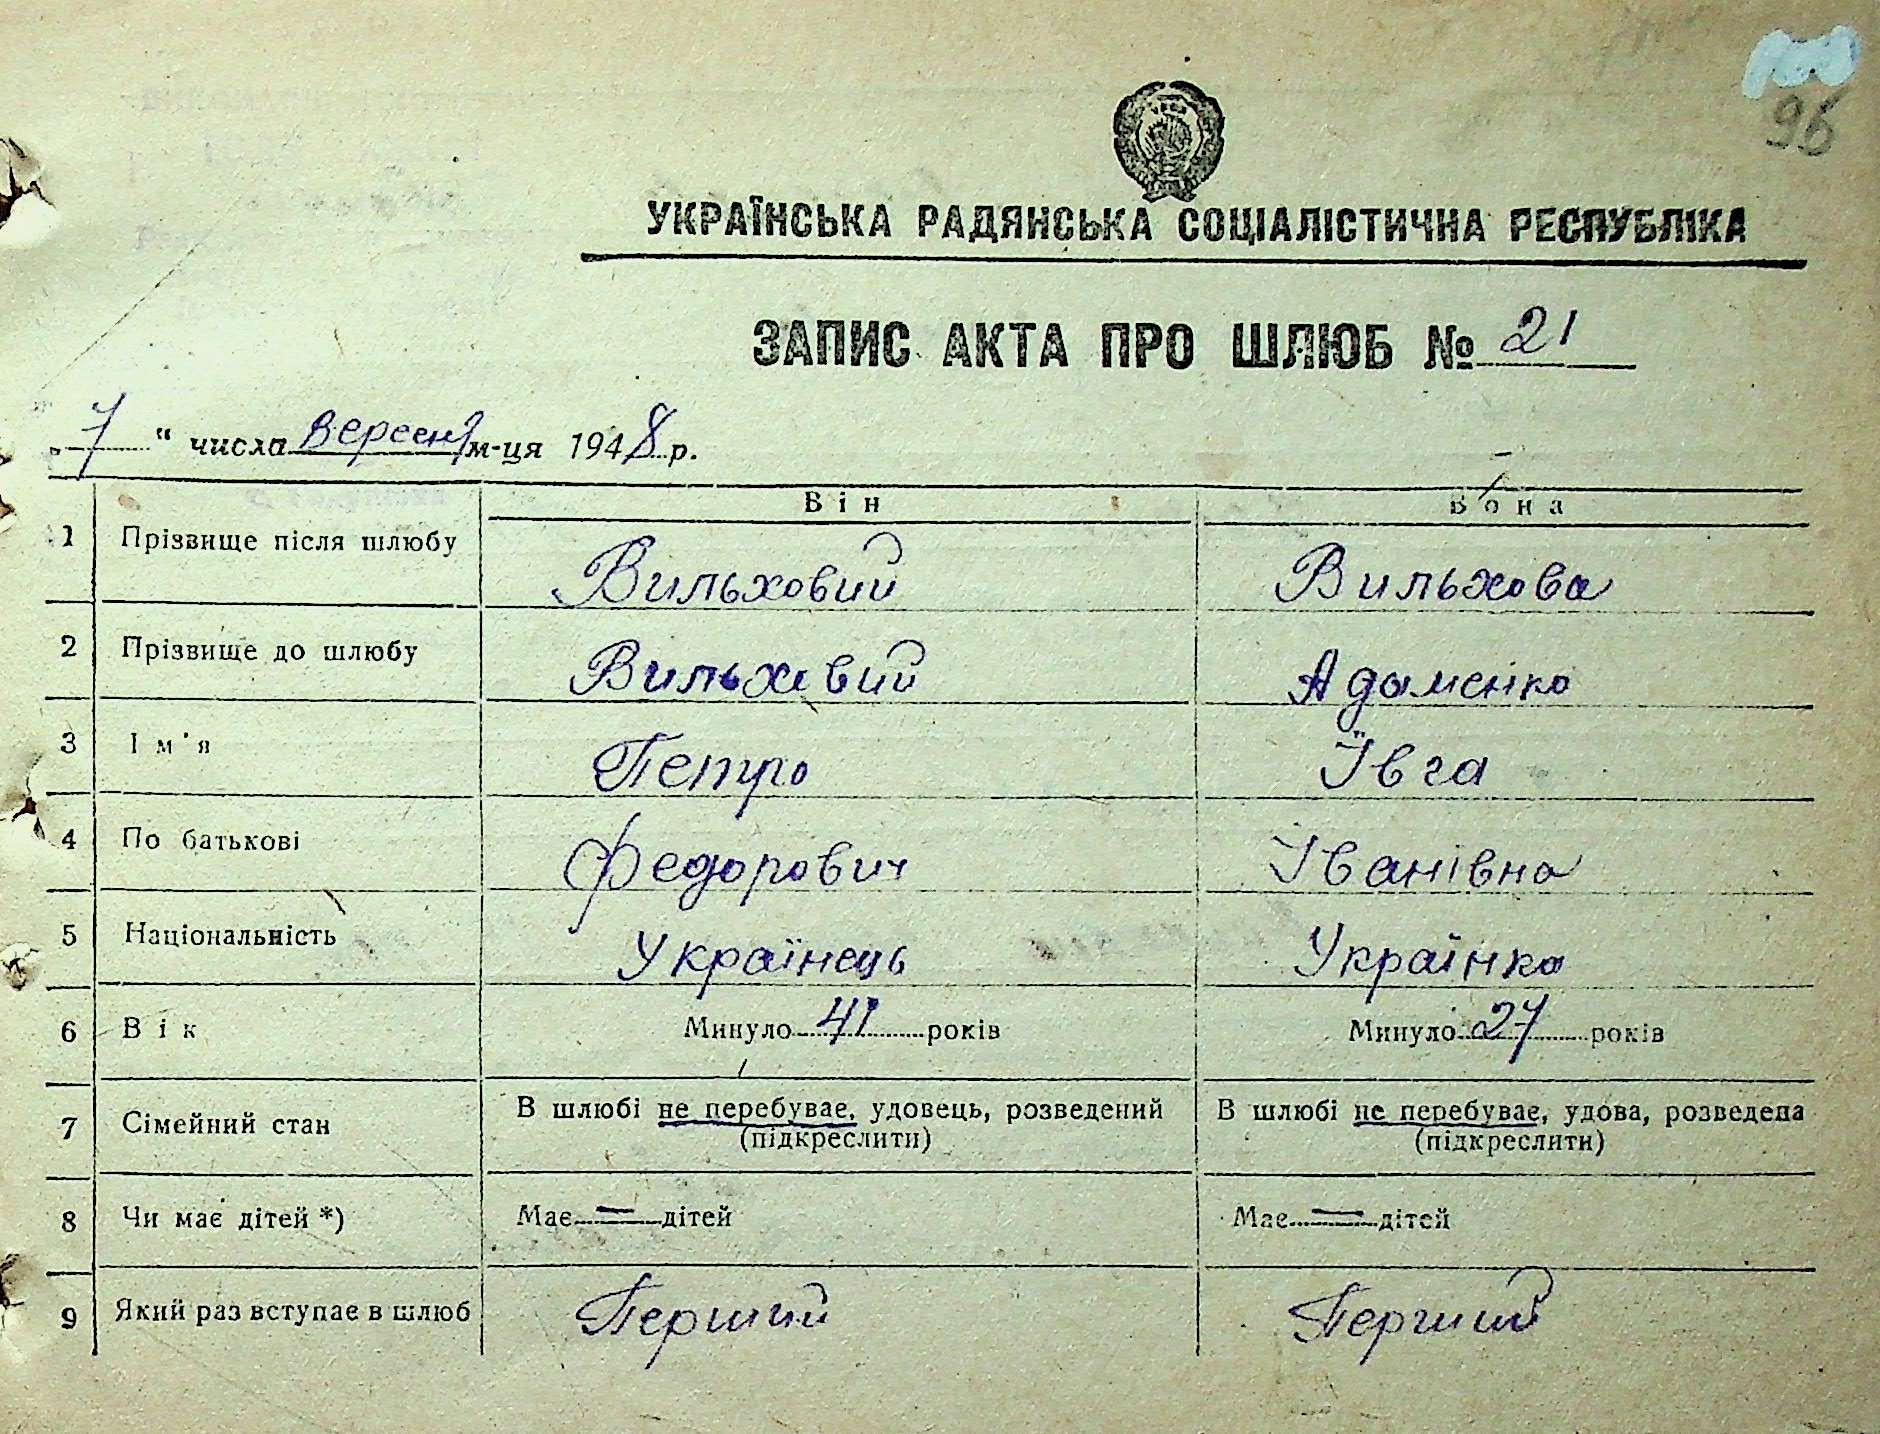 96
УКРАЇНСЬКА РАДЯНСЬКА СОЦІАЛІСТИЧНА РЕСПУБЛІКА
ЗАПИС АКТА ПРО ШЛЮБ № 21
„ 7 “ числа вересня м-ця 1948 р.
Він Вона
1 Прізвище після шлюбу Вильховий Вильхова
2 Прізвище до шлюбу Вильховий Адаменко
3 Ім'я Петро Ївга
4 По батькові Федорович Іванівна
5 Національність Українець Українка
6 Вік Минуло 41 років Минуло 27 років
7 Сімейний стан В шлюбі не перебуває, удовець, розведений В шлюбі не перебуває, удова, розведена
(підкреслити) (підкреслити)
8 Чи має дітей *) Має — дітей Має — дітей
9 Який раз вступає в шлюб Перший Перший